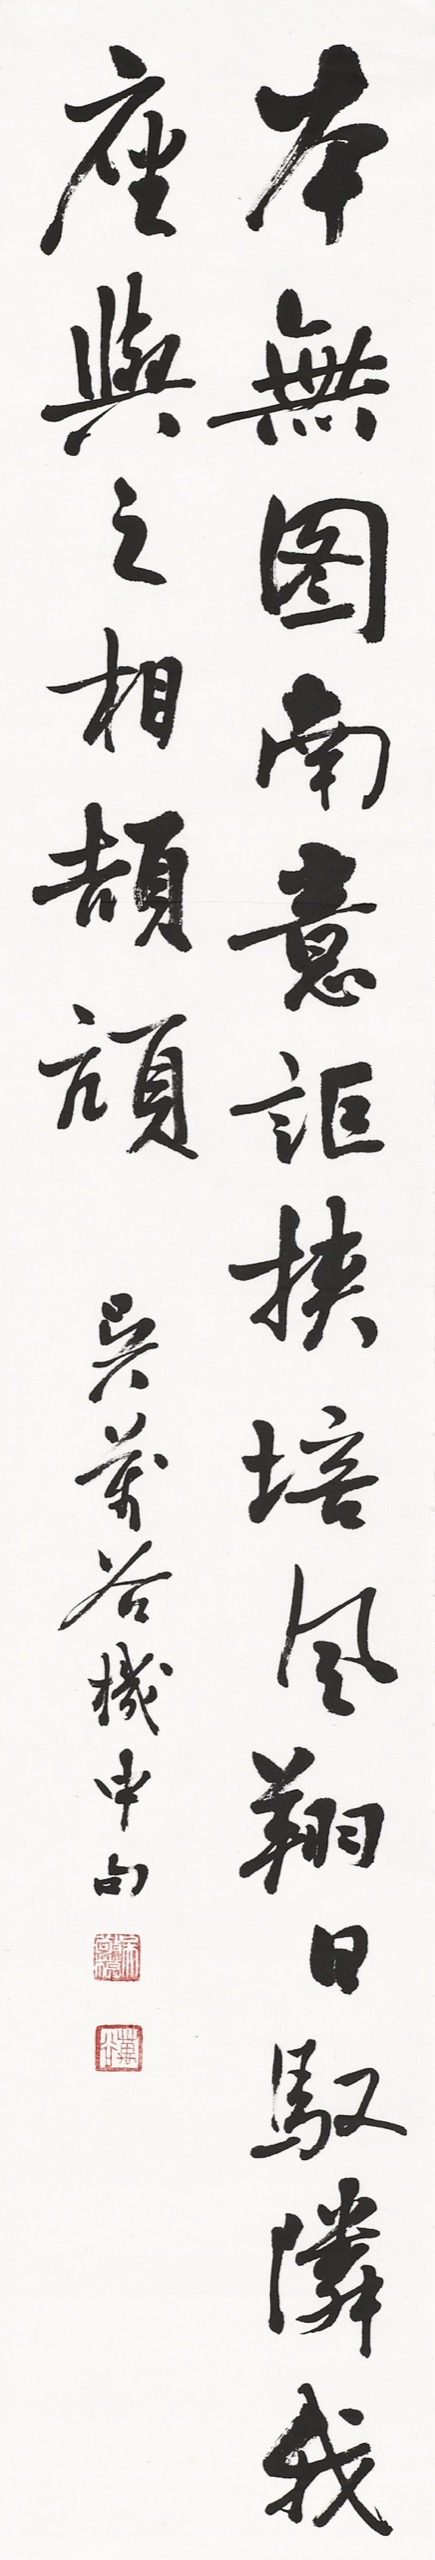 本無图南意詎挾培風翔日馭隣我
座與之相頡頏 吳萬谷機中句